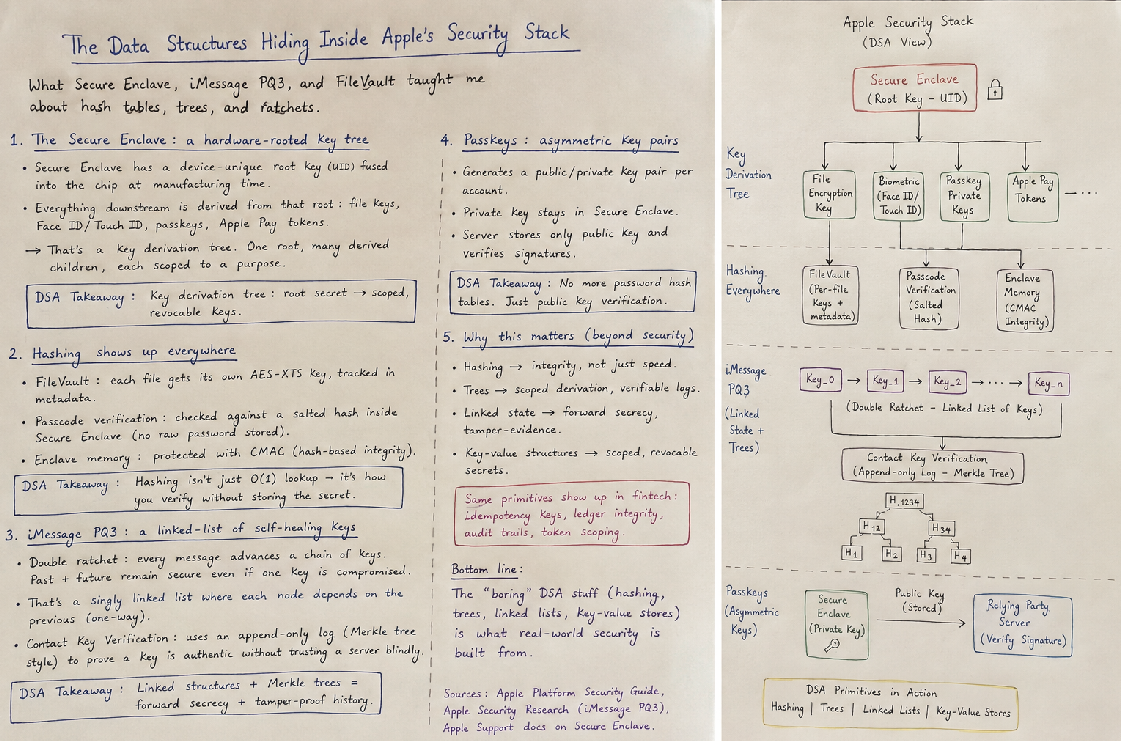 The Data Structures Hiding Inside Apple's Security Stack
What Secure Enclave, iMessage PQ3, and FileVault taught me
about hash tables, trees, and ratchets.
1. The Secure Enclave : a hardware-rooted key tree
• Secure Enclave has a device-unique root key (UID) fused
into the chip at manufacturing time.
• Everything downstream is derived from that root : file keys,
Face ID/Touch ID, passkeys, Apple Pay tokens.
→ That's a key derivation tree. One root, many derived
children, each scoped to a purpose.
DSA Takeaway : Key derivation tree : root secret → scoped,
revocable keys.
2. Hashing shows up everywhere
• FileVault : each file gets its own AES-XTS key, tracked in
metadata.
• Passcode verification : checked against a salted hash inside
Secure Enclave (no raw password stored).
• Enclave memory : protected with CMAC (hash-based integrity).
DSA Takeaway : Hashing isn't just O(1) lookup → it's how
you verify without storing the secret.
3. iMessage PQ3 : a linked-list of self-healing keys
• Double ratchet : every message advances a chain of keys.
Past + future remain secure even if one key is compromised.
• That's a singly linked list where each node depends on the
previous (one-way).
• Contact Key Verification : uses an append-only log (Merkle tree
style) to prove a key is authentic without trusting a server blindly.
DSA Takeaway : Linked structures + Merkle trees =
forward secrecy + tamper-proof history.
4. Passkeys : asymmetric key pairs
• Generates a public/private key pair per
account.
• Private key stays in Secure Enclave.
• Server stores only public key and
verifies signatures.
DSA Takeaway : No more password hash
tables. Just public key verification.
5. Why this matters (beyond security)
• Hashing → integrity, not just speed.
• Trees → scoped derivation, verifiable logs.
• Linked state → forward secrecy,
tamper-evidence.
• Key-value structures → scoped, revocable
secrets.
Same primitives show up in fintech :
idempotency keys, ledger integrity,
audit trails, token scoping.
Bottom line :
The "boring" DSA stuff (hashing,
trees, linked lists, key-value stores)
is what real-world security is
built from.
Sources : Apple Platform Security Guide,
Apple Security Research (iMessage PQ3),
Apple Support docs on Secure Enclave.
Apple Security Stack
(DSA View)
Secure Enclave
(Root Key - UID)
Key
Derivation
Tree
File
Encryption
Key
Biometric
(Face ID/
Touch ID)
Passkey
Private
Keys
Apple Pay
Tokens
Hashing
Everywhere
FileVault
(Per-file
Keys +
metadata)
Passcode
Verification
(Salted
Hash)
Enclave
Memory
(CMAC
Integrity)
iMessage
PQ3
(Linked
State +
Trees)
Key_0 → Key_1 → Key_2 → ... → Key_n
(Double Ratchet - Linked List of Keys)
Contact Key Verification
(Append-only Log - Merkle Tree)
H_1234
H_12
H_34
H_1
H_2
H_3
H_4
Passkeys
(Asymmetric
Keys)
Secure
Enclave
(Private Key)
Public Key
(Stored)
Relying Party
Server
(Verify Signature)
DSA Primitives in Action
Hashing | Trees | Linked Lists | Key-Value Stores